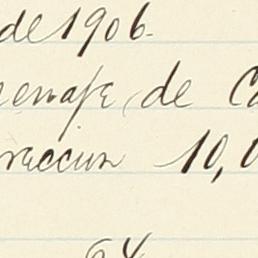 de 1906.
enaje, de Ca
raccion 10,0